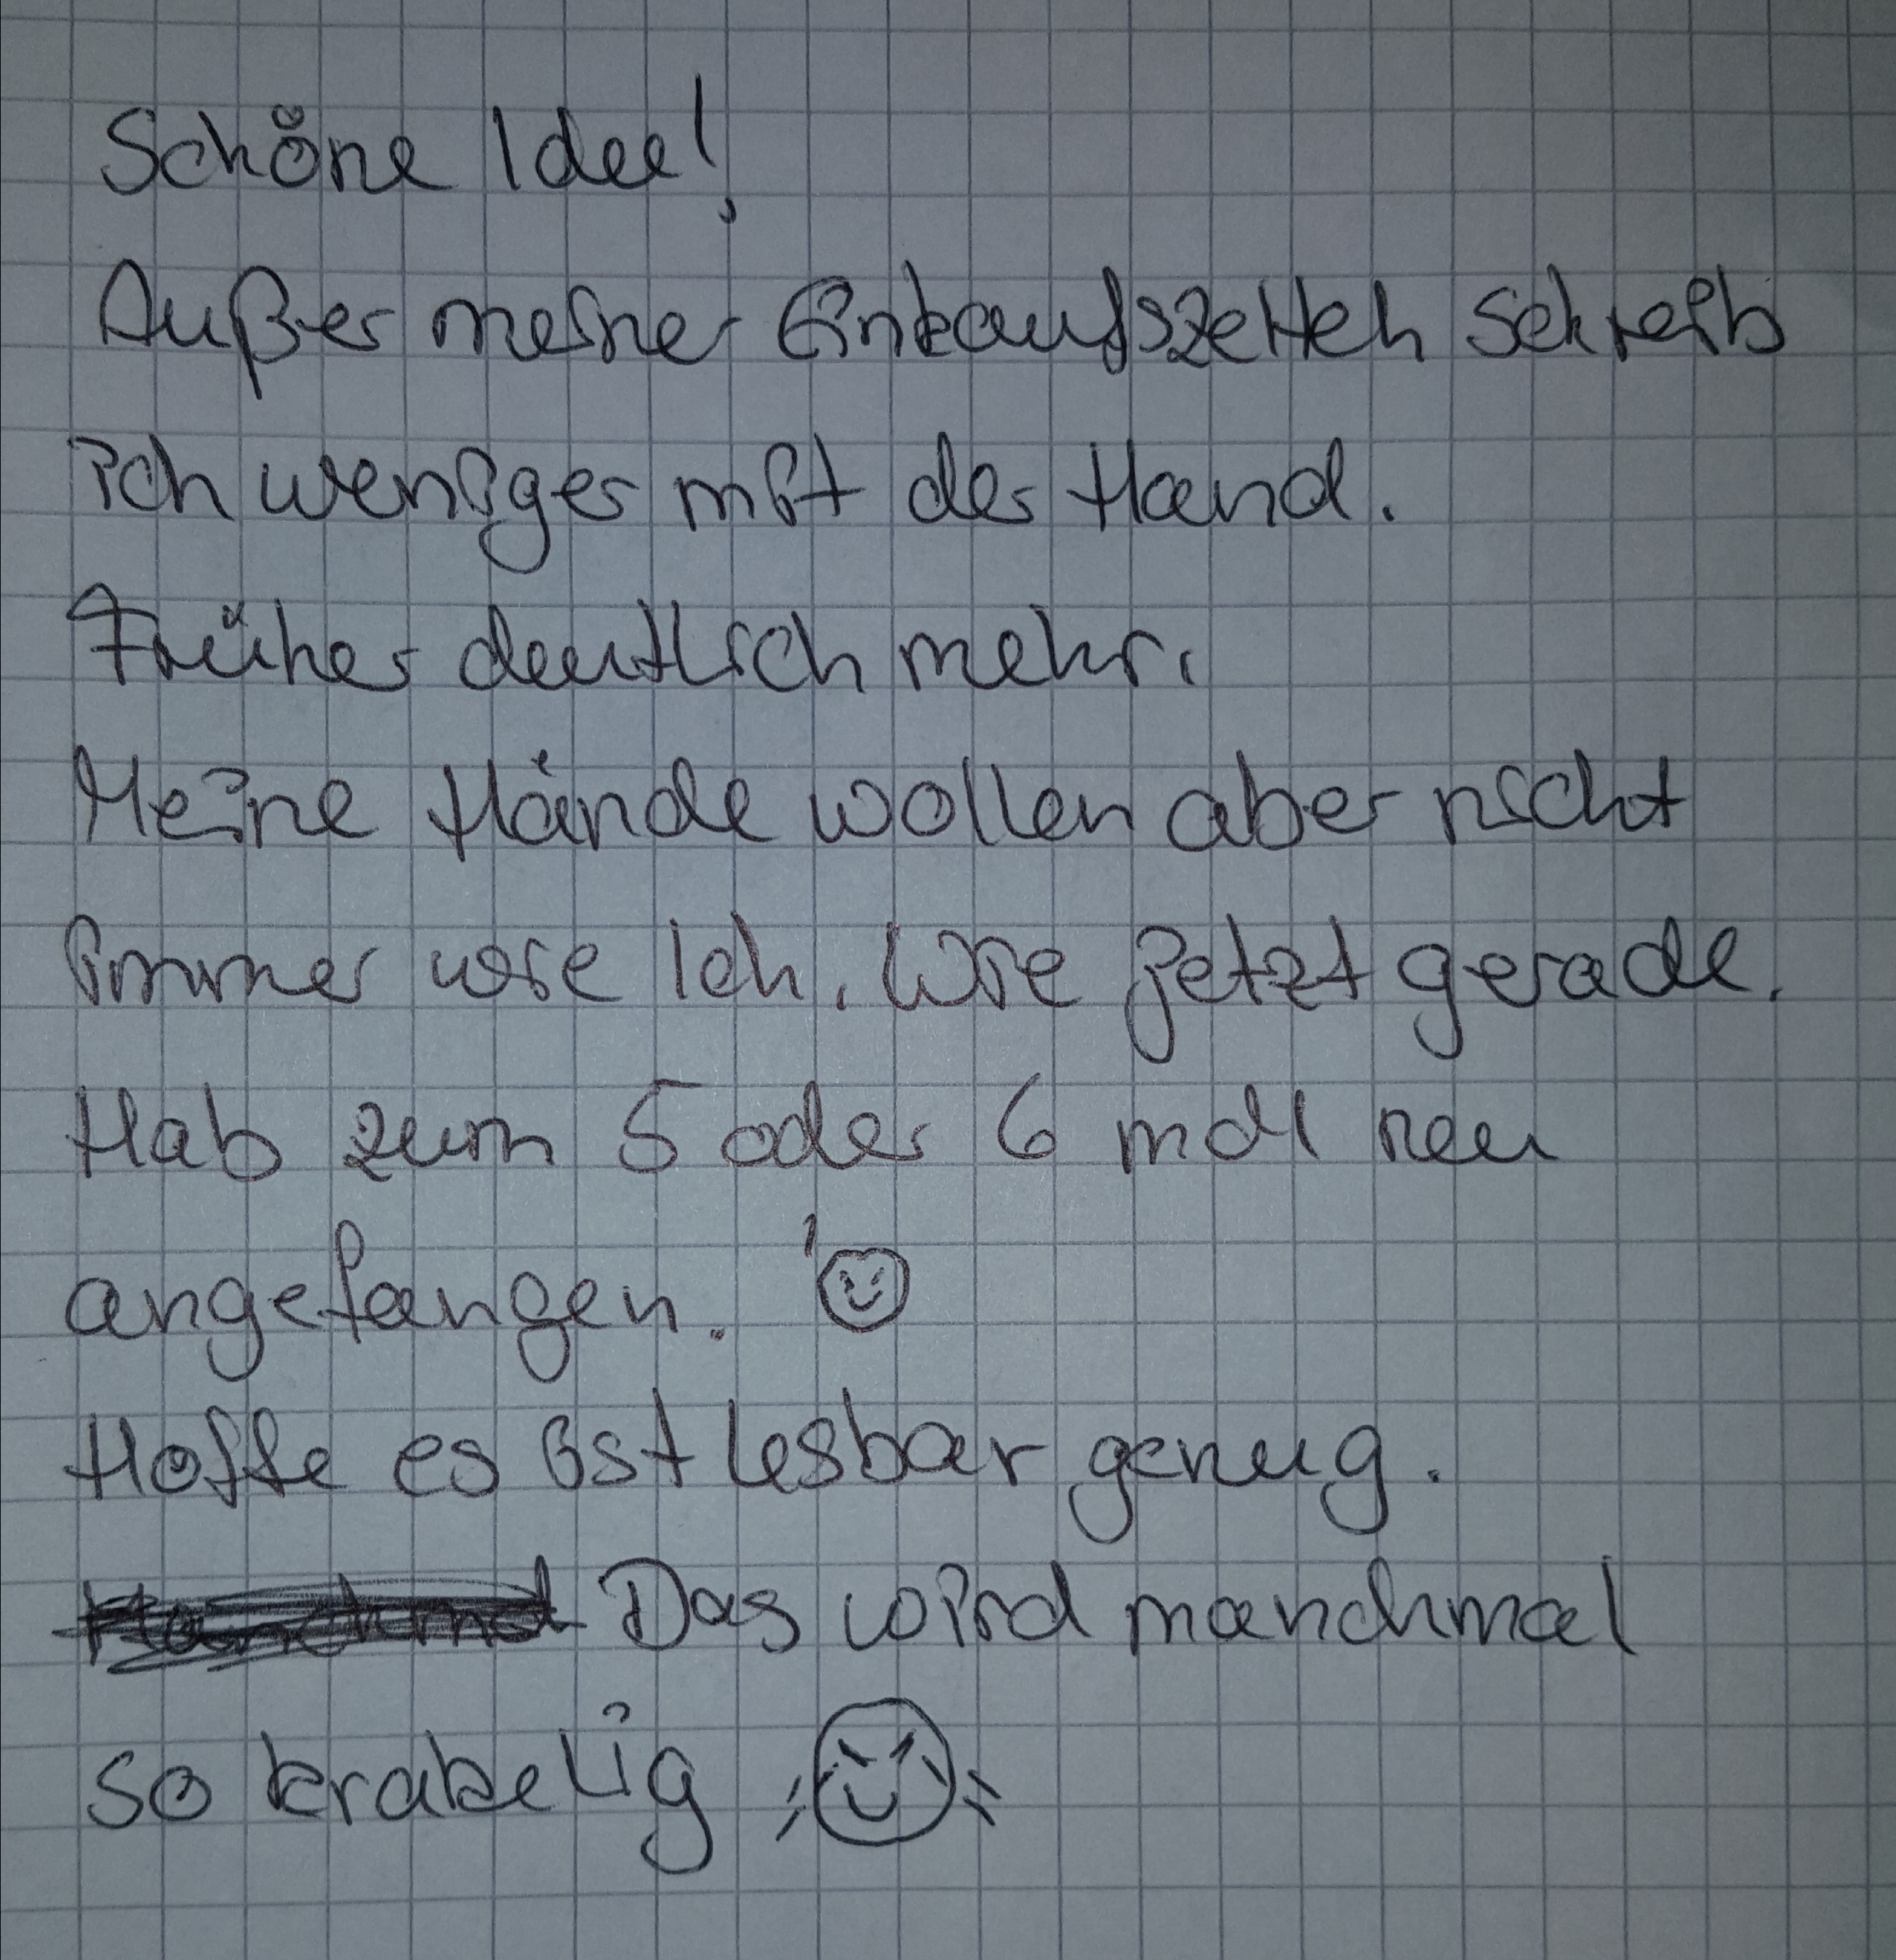 Schöne Idee!
Außer meiner Einkaufszetteln schreib
ich weniger mit der Hand.
Früher deutlich mehr.
Meine Hände wollen aber nicht
immer wie Ich. Wie jetzt gerade.
Hab zum 5 oder 6 mal neu
angefangen.
Hoffe es ist lesbar genug.
Das wird manchmal
so krakelig